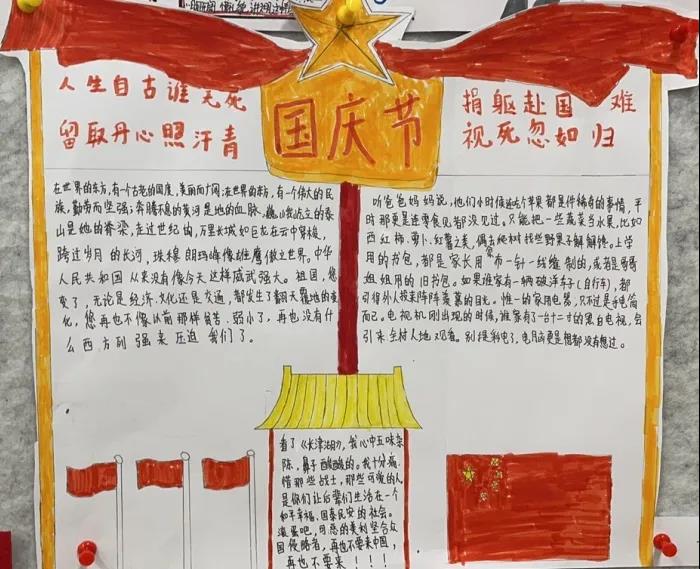 国庆节
人生自古谁无死
留取丹心照汗青
捐躯赴国难
视死忽如归
在世界的东方,有一个古老的国度,美丽而广阔;在世界的东方,有一个伟大的民
族,勤劳而坚强;奔腾不息的黄河是她的血脉,巍峨屹立的泰
山是她的脊梁,走过世纪的,万里长城如巨龙在云中穿梭,
跨过岁月的长河,珠穆朗玛峰像雄鹰傲立世界。中华
人民共和国从来没有像今天这样威武强大。祖国,您
变了,无论是经济、文化还是交通,都发生了翻天覆地的变
化,您再也不像以前那样贫苦、弱小了,再也没有什
么西方列强来压迫我们了。
听爸爸妈妈说,他们小时候连吃个苹果都是件稀奇的事情,平
时那更是连零食见都没见过。只能把一些蔬菜当水果,比如
西红柿、萝卜、红薯之类,偶去爬树找些野果子解解馋。上学
用的书包,都是家长用布一针一线缝制的,或者是哥哥
姐姐用的旧书包。如果谁家有一辆破洋车子(自行车),都
引得外人投来阵阵羡慕的目光。惟一的家用电器,只不过是手电筒
而已。电视机刚出现的时候,谁家有了一台十二寸的黑白电视,会
引来全村人地观看。别提彩电了,电脑更是想都没有想过。
看了《长津湖》,我心中五味杂
陈,鼻子酸酸的。我十分痛
惜那些战士,那些可爱的人
是你们让后辈们生活在一个
和平幸福、国泰民安的社会。
滚蛋吧,可恶的美利坚合众
国侵略者,再也不要来中国,
再也不要来!!!